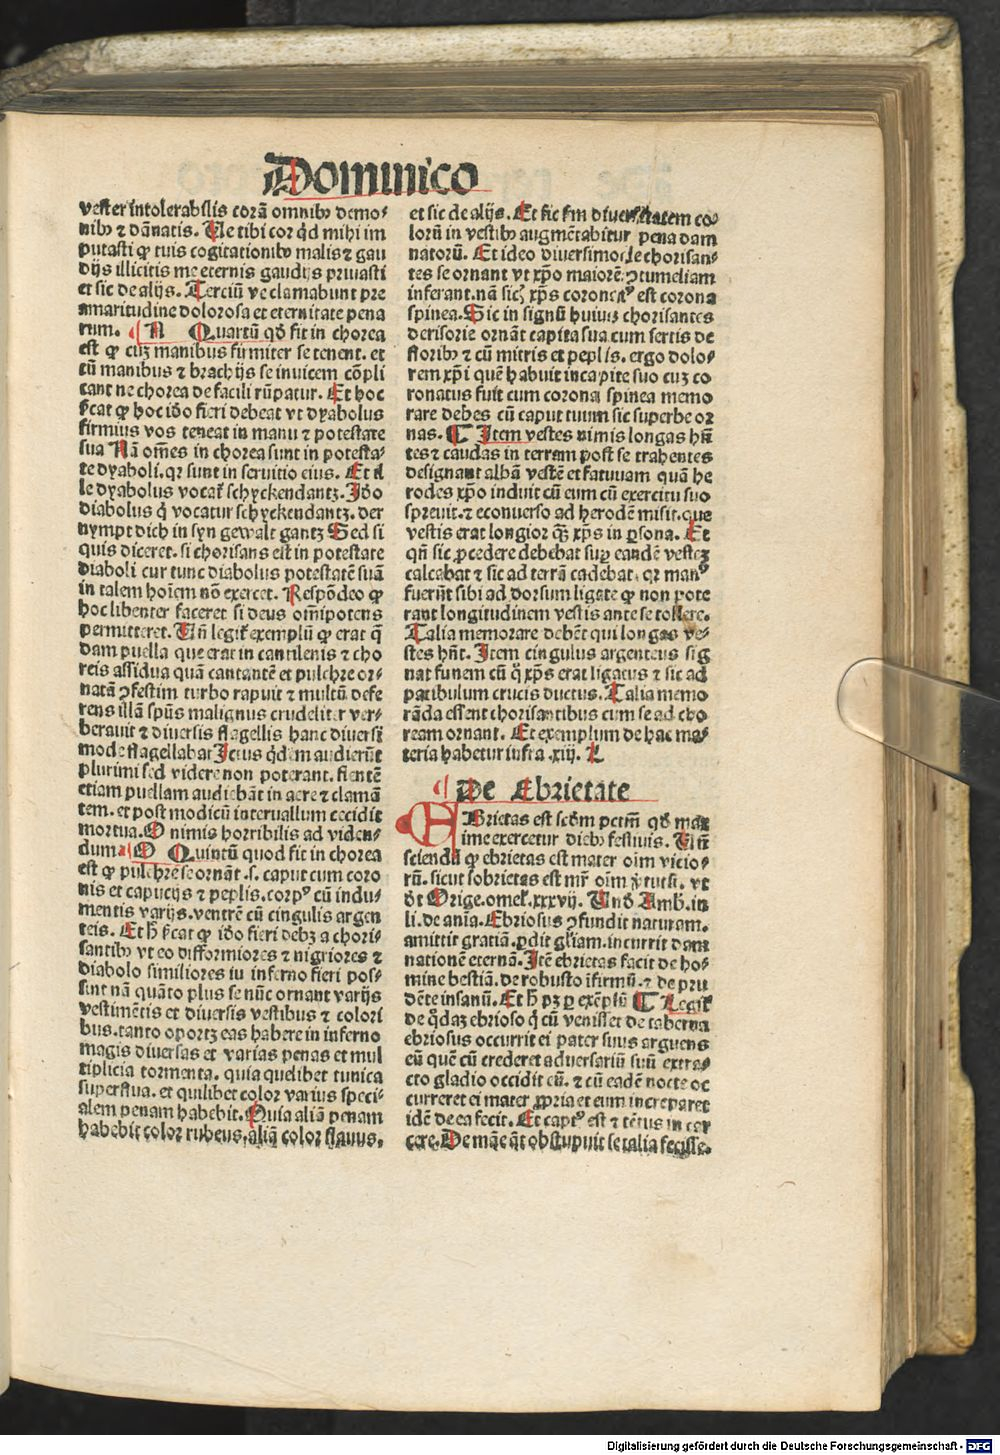 Dominico
vester intolerabilis corā omnibꝰ demo⸗
nibꝰ ⁊ dānatis. Ue tibi cor qd̄ mihi im
putasti ꝙ tuis cogitationibꝰ malis ⁊ gau
dijs illicitis me eternis gaudijs priuasti
et sic de alijs. Terciū ve clamabunt pre
amaritudine dolorosa et eternitate pena
rum. ¶ N Quartū qd̄ fit in chorea
est ꝙ cuʒ manibus firmiter se tenent. et
cū manibus ⁊ brachijs se inuicem cōpli
cant ne chorea de facili rūpatur. Et hoc
ſcat ꝙ hoc iđo fieri debeat vt dyabolus
firmius vos teneat in manu ⁊ potestate
sua Nā om̄es in chorea sunt in potesta⸗
te dyaboli. qꝛ sunt in seruitio eius. Et il
le dyabolus vocat̄ schyckendantʒ. Iđo
diabolus q̄ vocatur schyckendantʒ. der
nympt dich in syn gewalt gantʒ Sed si
quis diceret. si chorisans est in potestate
diaboli cur tunc diabolus potestatē suā
in talem hoīem nō exercet. Respōdeo ꝙ
hoc libenter faceret si deus om̄ipotens
permitteret. Un̄ legit̄ exemplū ꝙ erat q̄
dam puella que erat in cantilenis ⁊ cho
reis assidua quā cantantē et pulchre or⸗
natā ꝯfestim turbo rapuit ⁊ multū defe
rens illā spūs malignus crudeliter ver⸗
berauit ⁊ diuersis flagellis hanc diuersi
mode flagellabat Ictus qđem audierūt
plurimi sed videre non poterant. flentē
etiam puellam audiebāt in aere ⁊ clamā
tem. et post modicū interuallum cecidit
mortua. O nimis horribilis ad viden⸗
dum ¶ O Quintū quod fit in chorea
est ꝙ pulchre se ornāt .s. caput cum coro
nis et capucijs ⁊ peplis. corpꝰ cū indu⸗
mentis varijs. ventrē cū cingulis argen
teis. Et h̄ ſcat ꝙ iđo fieri debʒ a chori⸗
santibꝰ vt eo difformiores ⁊ nigriores ⁊
diabolo similiores iu inferno fieri pos⸗
sint nā quāto plus se nūc ornant varijs
vestimētis et diuersis vestibus ⁊ colori
bus. tanto oportʒ eas habere in inferno
magis diuersas et varias penas et mul
tiplicia tormenta. quia quelibet tunica
superflua. et quilibet color varius speci⸗
alem penam habebit. Quia aliā penam
habebit color rubeus, aliā color flauus,
et sic de alijs. Et sic fm diuersitatem co⸗
lorū in vestibꝰ augmētabitur pena dam
natorū. Et ideo diuersimode chorisan⸗
tes se ornant vt xp̄o maiorē ꝯtumeliam
inferant. nā sicʒ xp̄s coronatꝰ est corona
spinea. Sic in signū huius chorisantes
derisorie ornāt capita sua cum sertis de
floribꝰ ⁊ cū mitris et peplis. ergo dolo⸗
rem xp̄i quē habuit in capite suo cuʒ co
ronatus fuit cum corona spinea memo
rare debes cū caput tuum sic superbe or
nas. ¶ Item vestes nimis longas hn̄
tes ⁊ caudas in terram post se trahentes
designant albā vestē et fatuuam quā he
rodes xp̄o induit cū eum cū exercitu suo
spreuit. ⁊ econuerso ad herodē misit. que
vestis erat longior q̄ʒ xp̄s in ꝑsona. Et
qn̄ sic ꝓcedere debebat suꝑ eandē vesteʒ
calcabat ⁊ sic ad terrā cadebat. qꝛ manꝰ
fuerūt sibi ad dorsum ligate ꝙ non pote
rant longitudinem vestis ante se tollere.
Talia memorare debēt qui longas ve⸗
stes hn̄t. Item cingulus argenteus sig
nat funem cū q̄ xp̄s erat ligatus ⁊ sic ad
patibulum crucis ductus. Talia memo
rāda essent chorisantibus cum se ad cho
ream ornant. Et exemplum de hac ma⸗
teria habetur infra .xiij. L
¶ De Ebrietate
EBrietas est scđm petm̄ qđ max
ime exercetur diebꝰ festiuis. Un̄
sciendū ꝙ ebrietas est mater oīm vicio⸗
rū. sicut sobrietas est mr̄ oīm ꝟtutū. vt
đt Orige. omel̄. xxxvij. Unđ Amb̄. in
li. de aīa. Ebriosus ꝯfundit naturam.
amittit gratiā. ꝑdit gl̄iam. incurrit dam
nationē eternā. Itē ebrietas facit de ho⸗
mine bestiā. de robusto īfirmū. ⁊ de pru
dēte insanū. Et h̄ pʒ ꝑ exēplū ¶ Legit̄
de q̄daʒ ebrioso q̄ cū venisset de taberna
ebriosus occurrit ei pater suus arguens
eū quē cū crederet aduersariū suū extra⸗
cto gladio occidit eū. ⁊ cū eadē nocte oc
curreret ei mater ꝓpria et eum increparet
idē de ea fecit. Et captꝰ est ⁊ tētus in car
cere. De māe aūt obstupuit se talia fecisse.
Digitalisierung gefördert durch die Deutsche Forschungsgemeinschaft - DFG